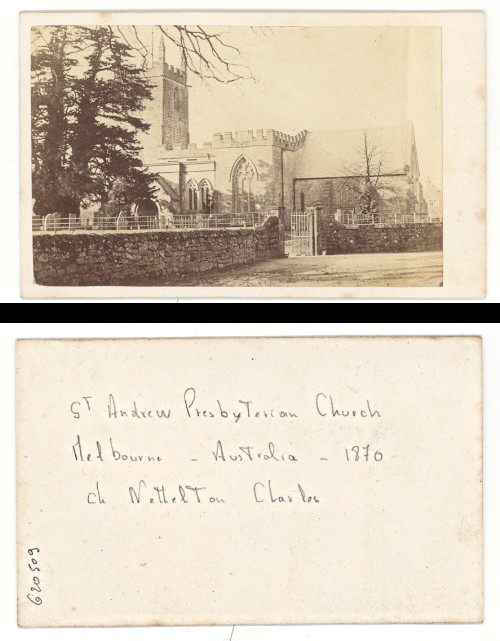 ST Andrew Presbyterian Church
Melbourne - Australia - 1870
ch Nettelton Charles
620509